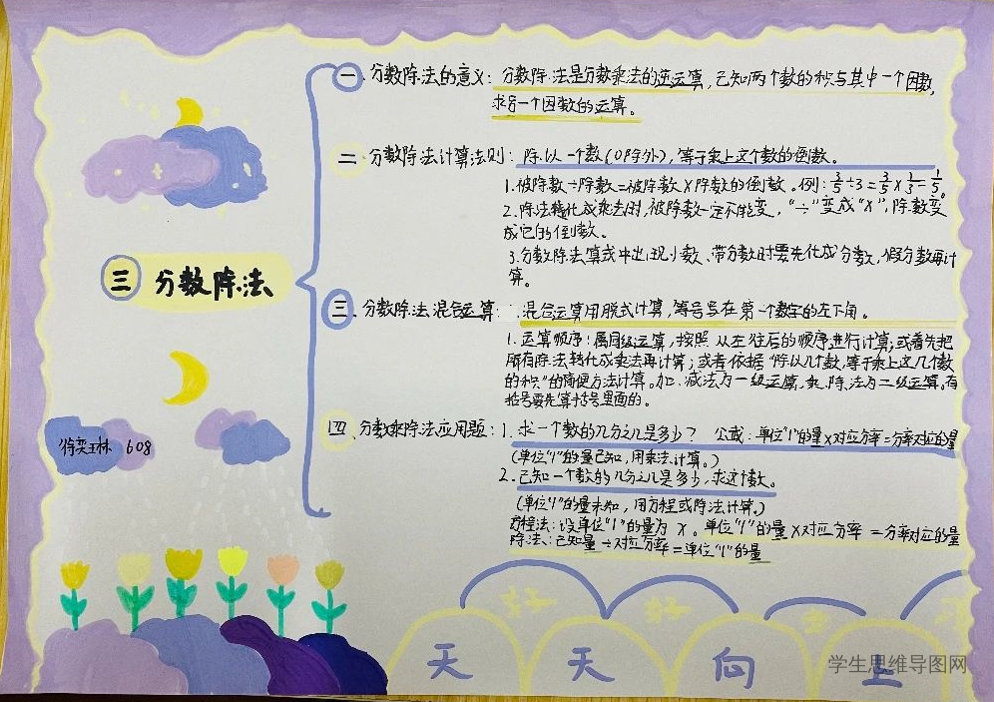 一、分数除法的意义：分数除法是分数乘法的逆运算，已知两个数的积与其中一个因数，
求另一个因数的运算。
二、分数除法计算法则：除以一个数(0除外)，等于乘上这个数的倒数。
1.被除数÷除数=被除数×除数的倒数。例：3/5÷3=3/5×1/3=1/5。
2.除法转化成乘法时，被除数一定不能变，"÷"变成"×"，除数变
成它的倒数。
3.分数除法算式中出现小数、带分数时要先化成分数，假分数再计
算。
三 分数除法
三、分数除法混合运算：混合运算用脱式计算，等号写在第一个数字的左下角。
1.运算顺序：属同级运算，按照从左往后的顺序进行计算；或者先把
所有除法转化成乘法再计算；或者依据"除以几个数，等于乘上这几个数
的积"的简便方法计算。加、减法为一级运算，乘、除法为二级运算。有
括号要先算括号里面的。
四、分数乘除法应用题：1.求一个数的几分之几是多少？ 公式：单位"1"的量×对应分率=分率对应的量
(单位"1"的量已知，用乘法计算。)
2.已知一个数的几分之几是多少，求这个数。
(单位"1"的量未知，用方程或除法计算。)
方程法：设单位"1"的量为x。单位"1"的量×对应分率=分率对应的量
除法：已知量÷对应分率=单位"1"的量
608
好 好 学 习
天 天 向 上
学生思维导图网